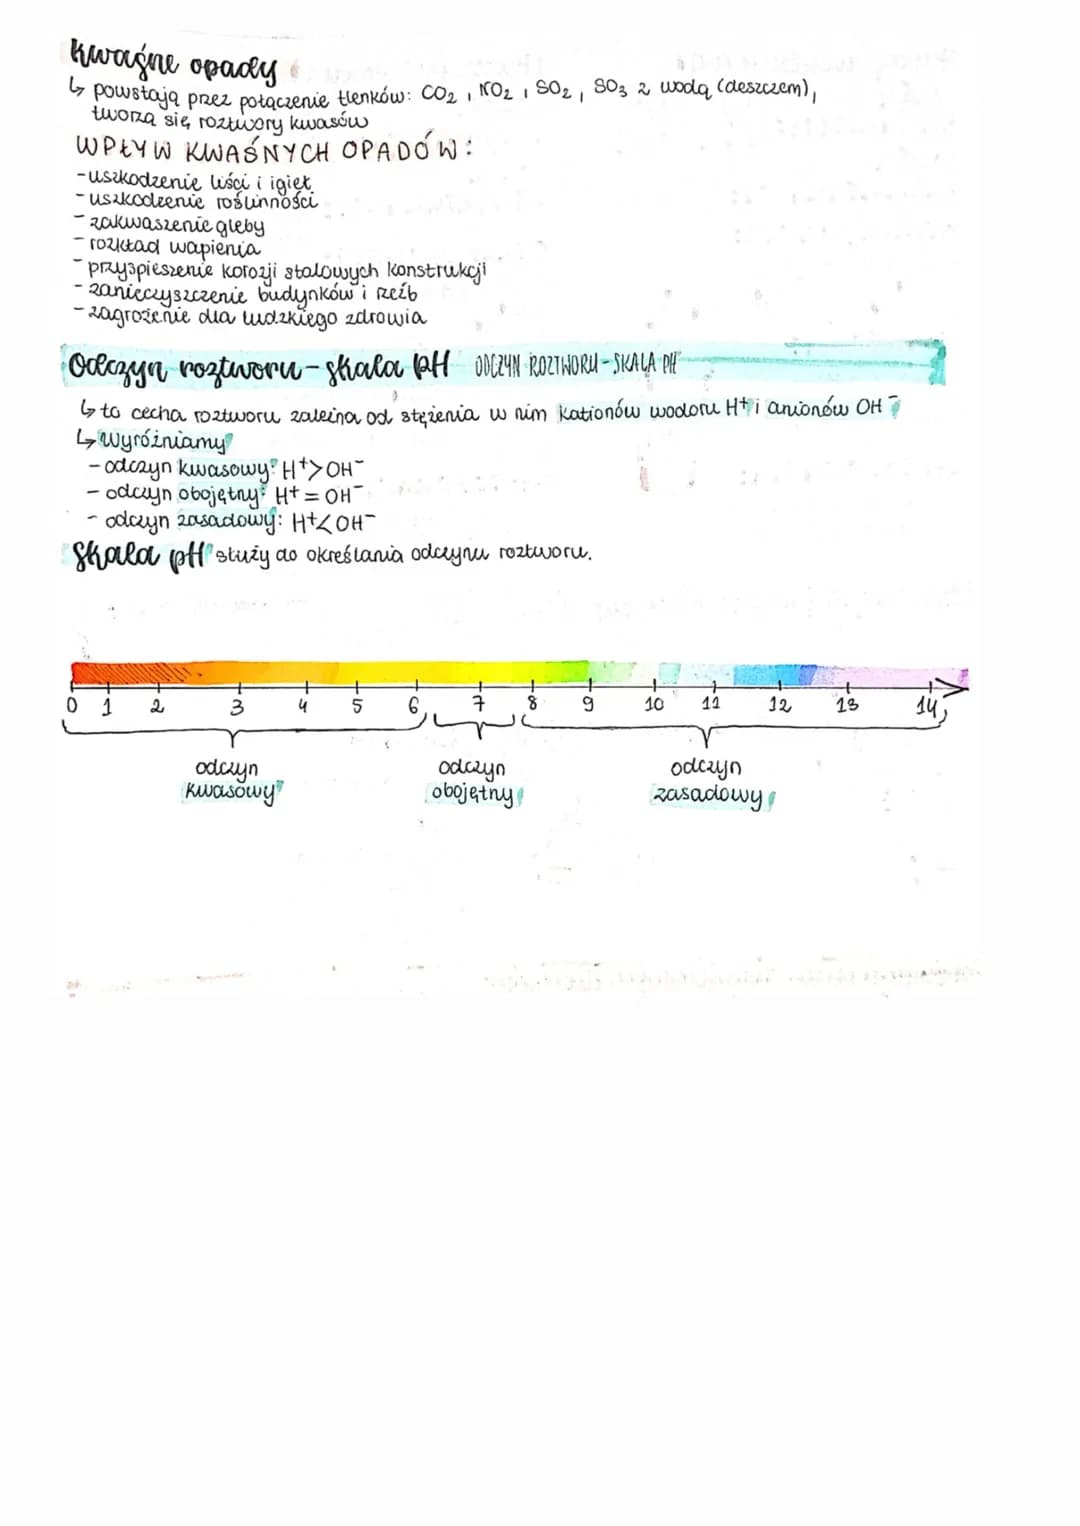 Kwaśne opady
↳ powstają przez połączenie tlenków: CO₂, NO₂, SO₂, SO₃ z wodą (deszczem),
tworzą się roztwory kwasów
WPŁYW KWAŚNYCH OPADÓW:
-uszkodzenie liści i igieł
-uszkodzenie roślinności
-zakwaszenie gleby
-rozkład wapienia
-przyspieszenie korozji stalowych konstrukcji
-zanieczyszczenie budynków i rzeźb
-zagrożenie dla ludzkiego zdrowia
Odczyn roztworu-skala pH ODCZYN ROZTWORU-SKALA PH
↳ to cecha roztworu zależna od stężenia w nim kationów wodoru H⁺ i anionów OH⁻
↳ Wyróżniamy
-odczyn kwasowy: H⁺>OH⁻
-odczyn obojętny: H⁺=OH⁻
-odczyn zasadowy: H⁺<OH⁻
Skala pH służy do określania odczynu roztworu.
0 1 2 3 4 5 6 7 8 9 10 11 12 13 14
odczyn odczyn odczyn
kwasowy obojętny zasadowy